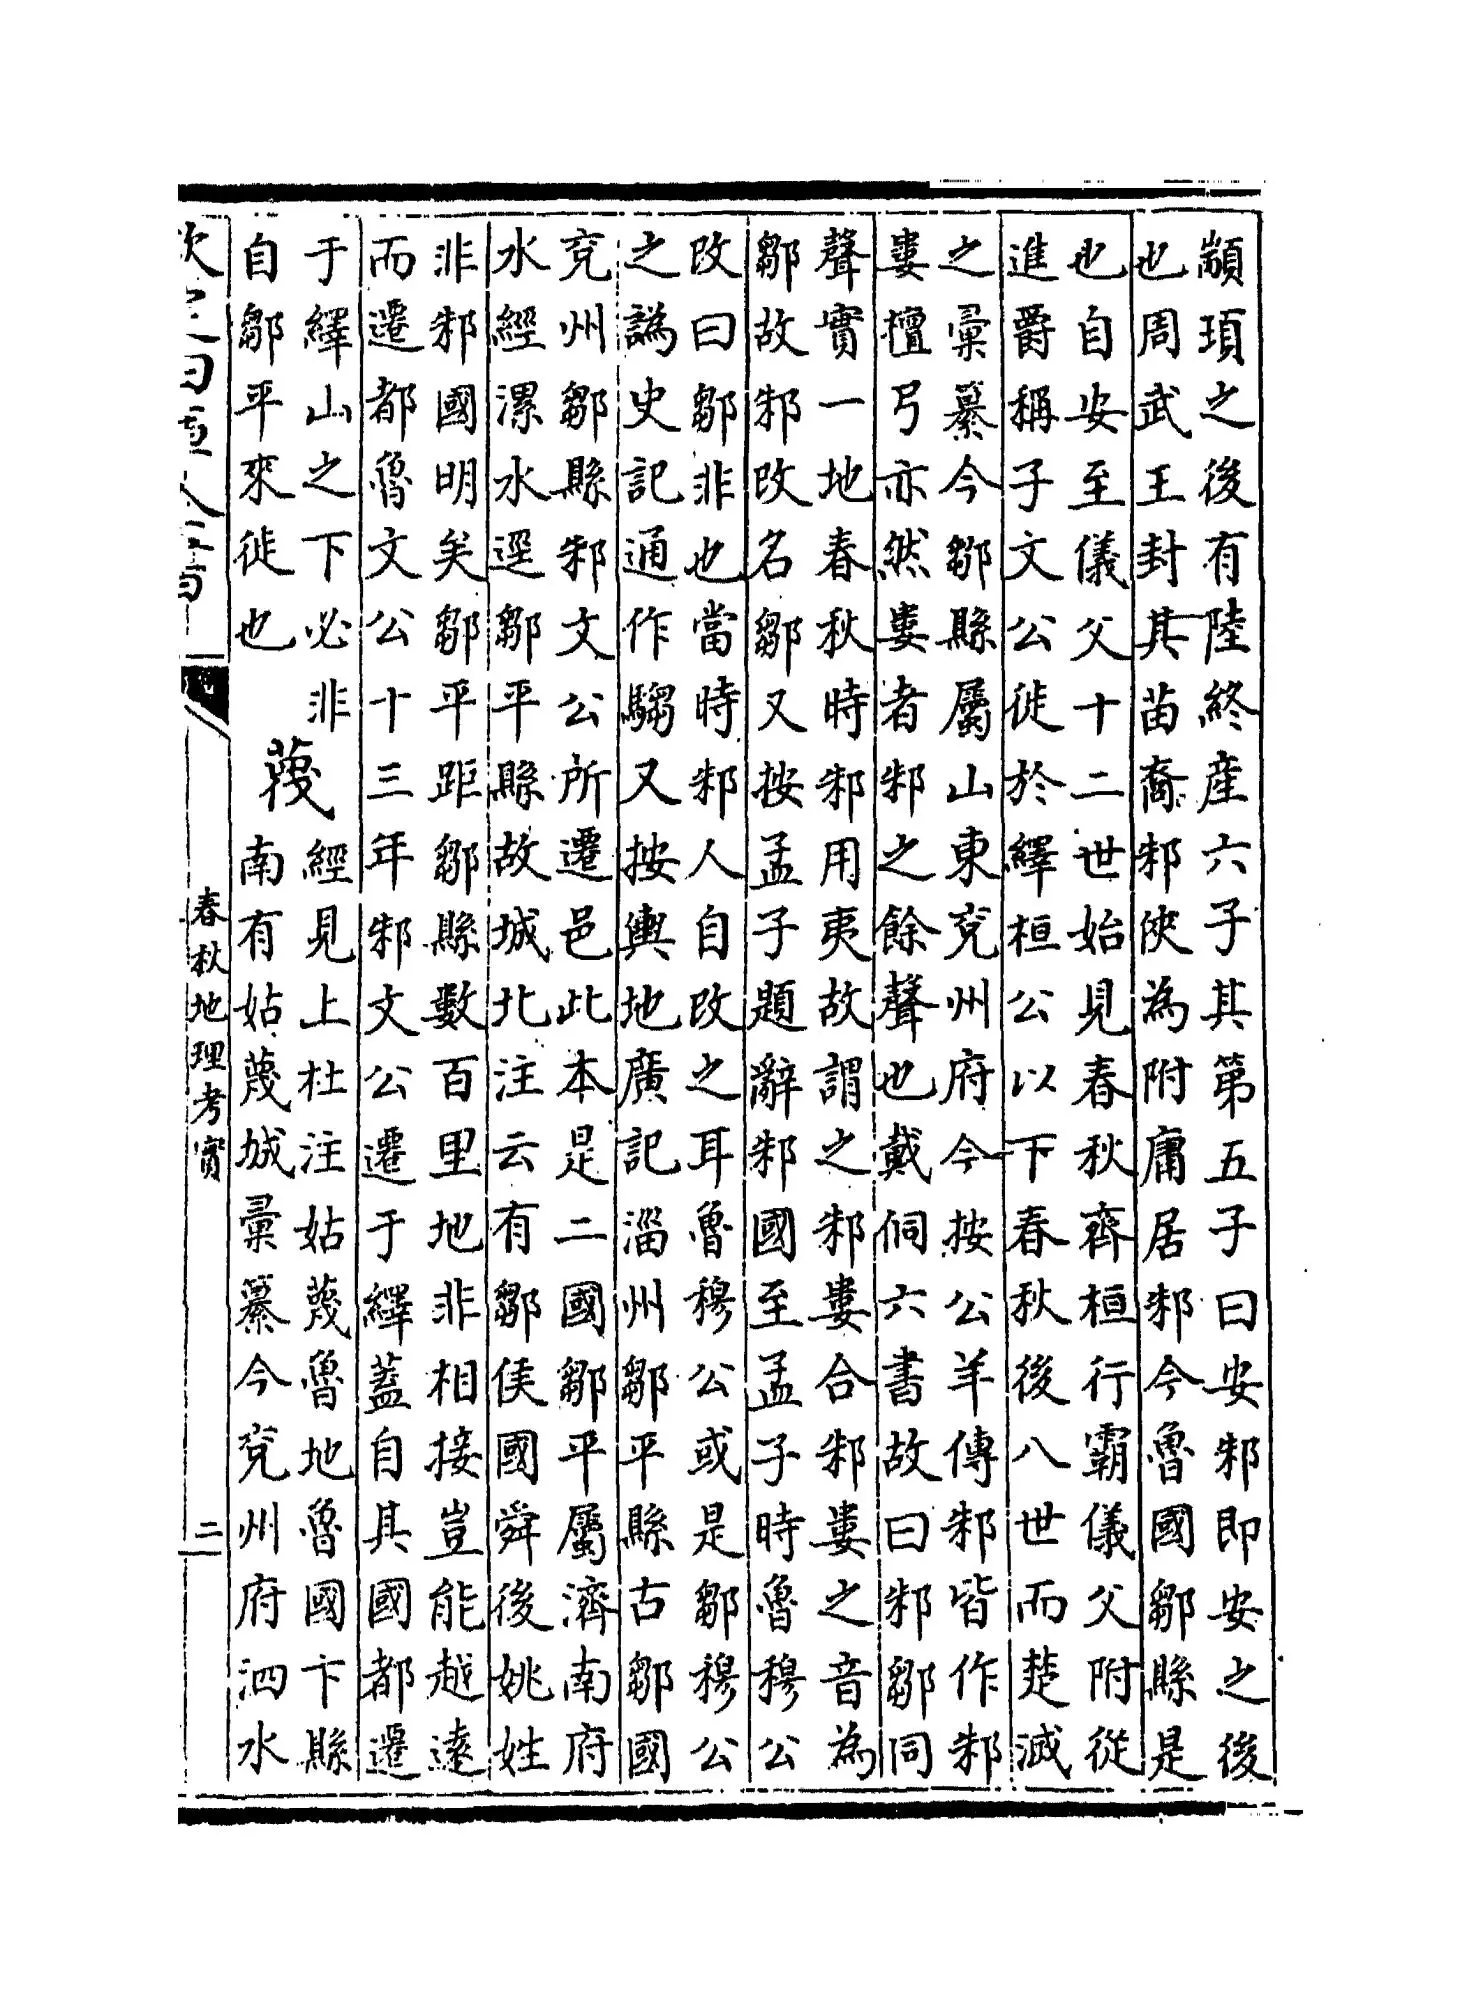 顓頊之後有陸終産六子其第五子曰安邾即安之後
也周武王封其苗裔邾俠為附庸居邾今魯國鄒縣是
也自安至儀父十二世始見春秋齊桓行霸儀父附從
進爵稱子文公徙於繹桓公以下春秋後八世而楚滅
之彚纂今鄒縣屬山東兖州府今按公羊傳邾皆作邾
婁檀弓亦然婁者邾之餘聲也戴侗六書故曰邾鄒同
聲實一地春秋時邾用夷故謂之邾婁合邾婁之音為
鄒故邾改名鄒又按孟子題辭邾國至孟子時魯穆公
改曰鄒非也當時邾人自改之耳魯穆公或是鄒穆公
之譌史記通作騶又按輿地廣記淄州鄒平縣古鄒國
兖州鄒縣邾文公所遷邑此本是二國鄒平屬濟南府
水經漯水逕鄒平縣故城北注云有鄒侯國舜後姚姓
非邾國明矣鄒平距鄒縣數百里地非相接豈能越遠
而遷都魯文公十三年邾文公遷于繹蓋自其國都遷
于繹山之下必非
自鄒平來徙也
蔑
經見上杜注姑蔑魯地魯國卞縣
南有姑蔑城彚纂今兖州府泗水
春秋地理考實
二